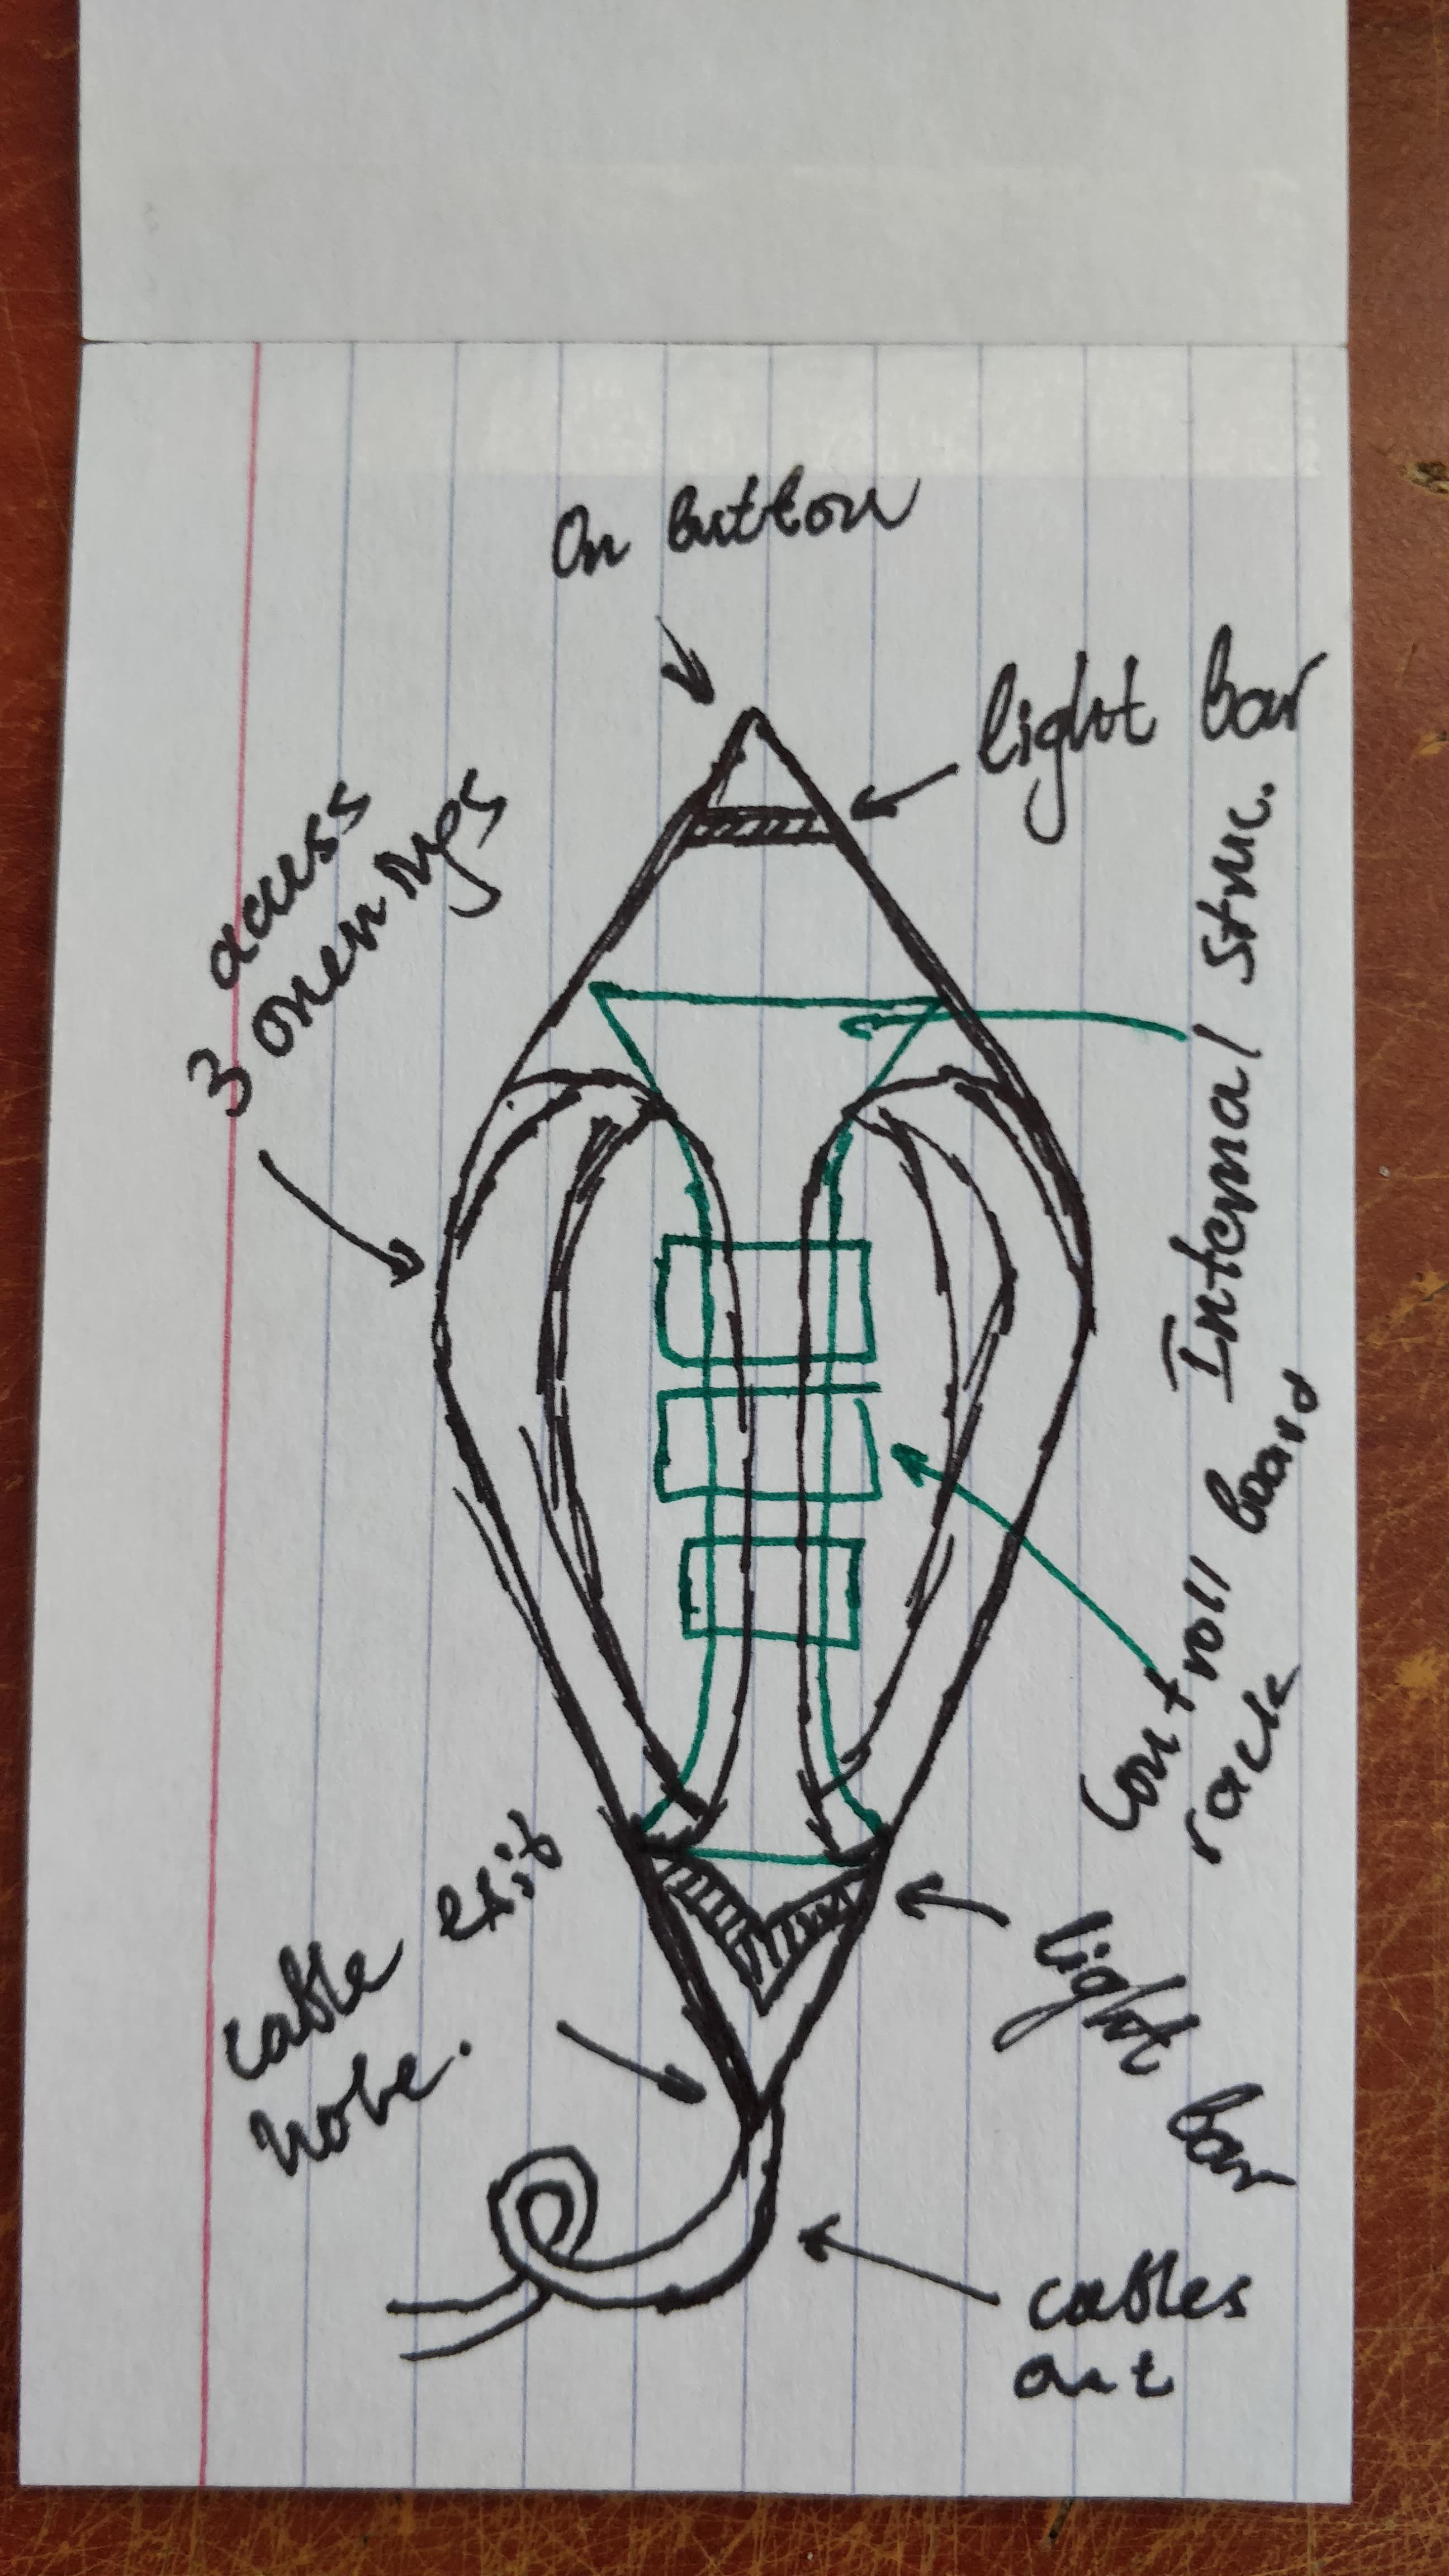 On button
light bar
access
3 openings
Internal struc.
Controll board
rack
cable exit
hole.
light bar
cables
out